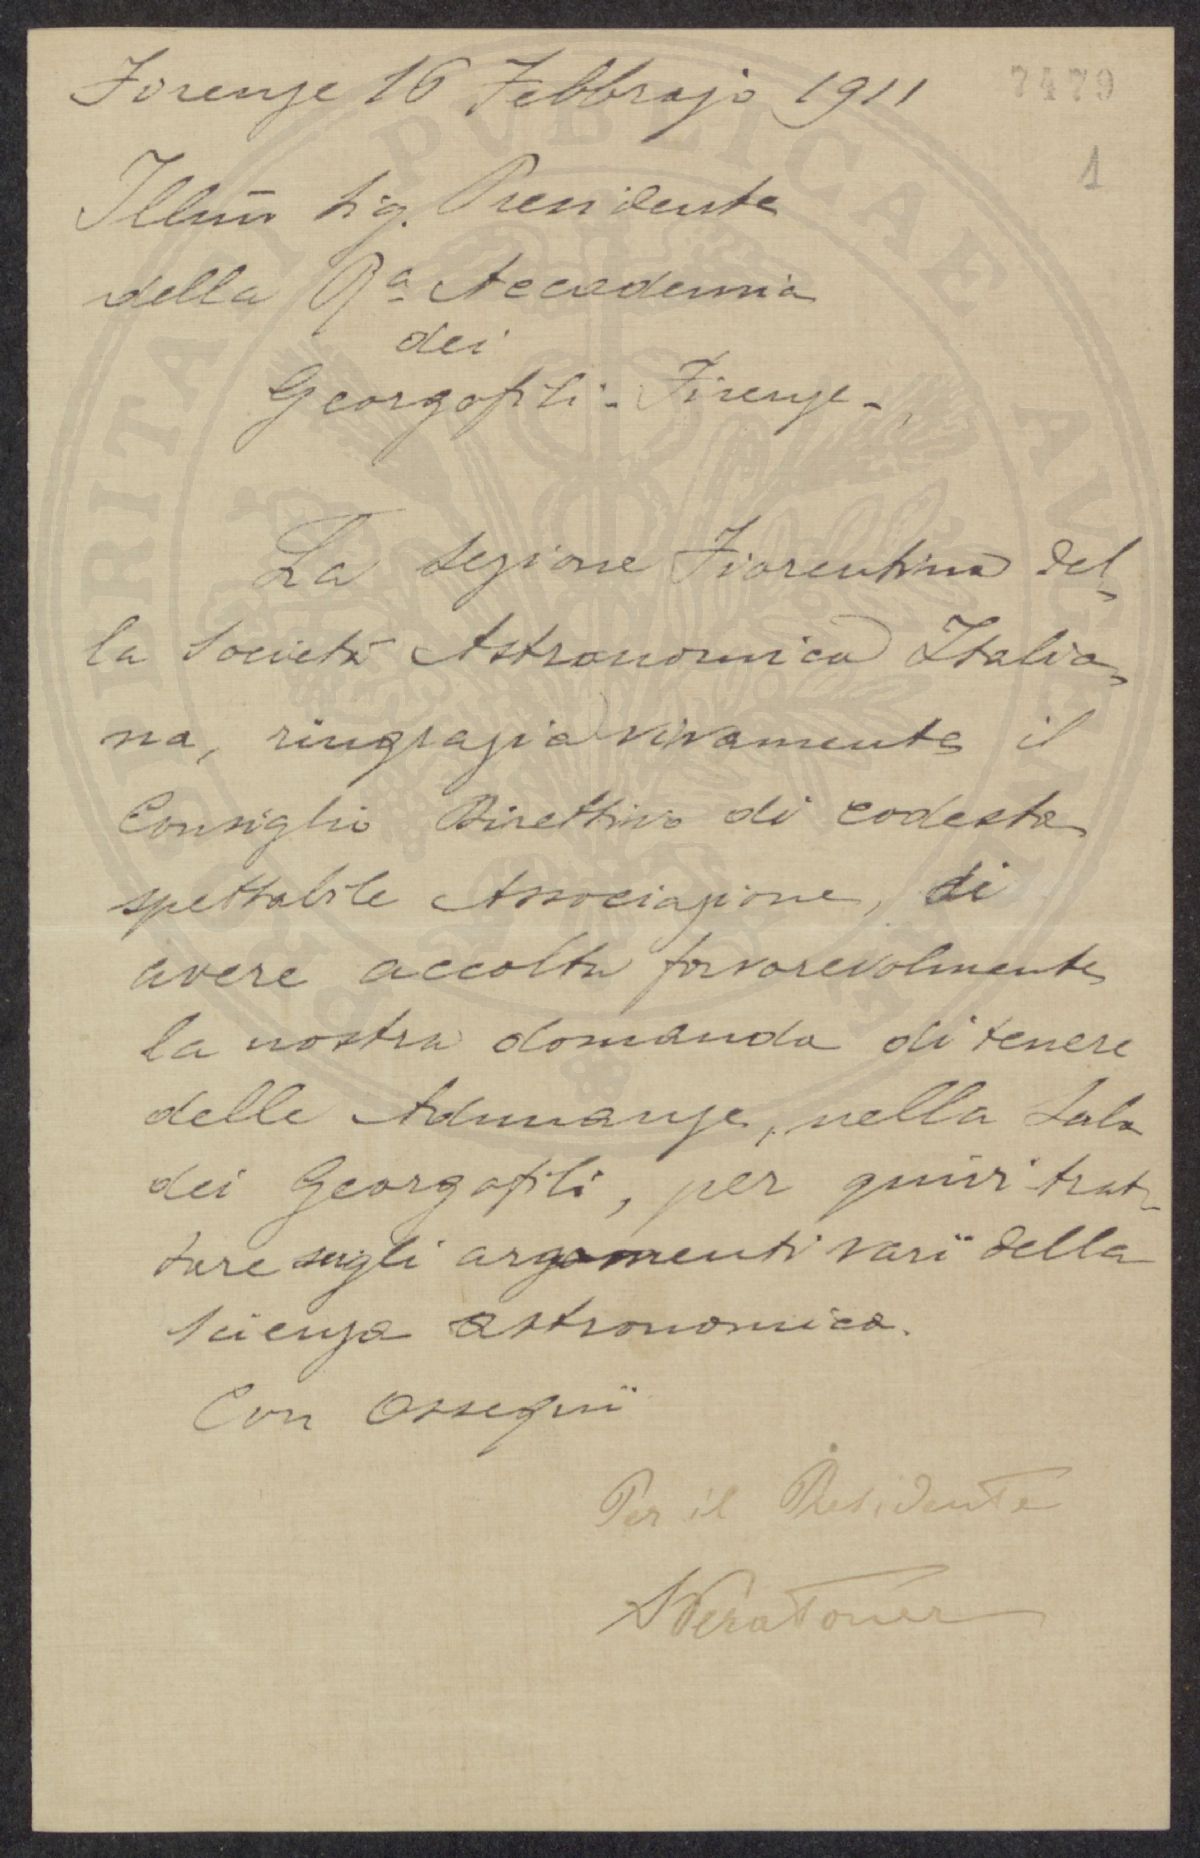 Firenze 16 Febbrajo 1911
7479
1
Illm̄o Sig. Presidente
della Rª Accademia
dei
Georgofili - Firenze -
La sezione Fiorentina del-
la Società Astronomica Italia-
na, ringrazia vivamente il
Consiglio Direttivo di codesta
spettabile Associazione, di
avere accolta favorevolmente
la nostra domanda di tenere
delle Adunanze, nella Sala
dei Georgofili, per quivi trat-
tare sugli argomenti varii della
scienza astronomica.
Con Ossequii
Per il Presidente
PROSPERITATI PUBLICAE AUGENDAE